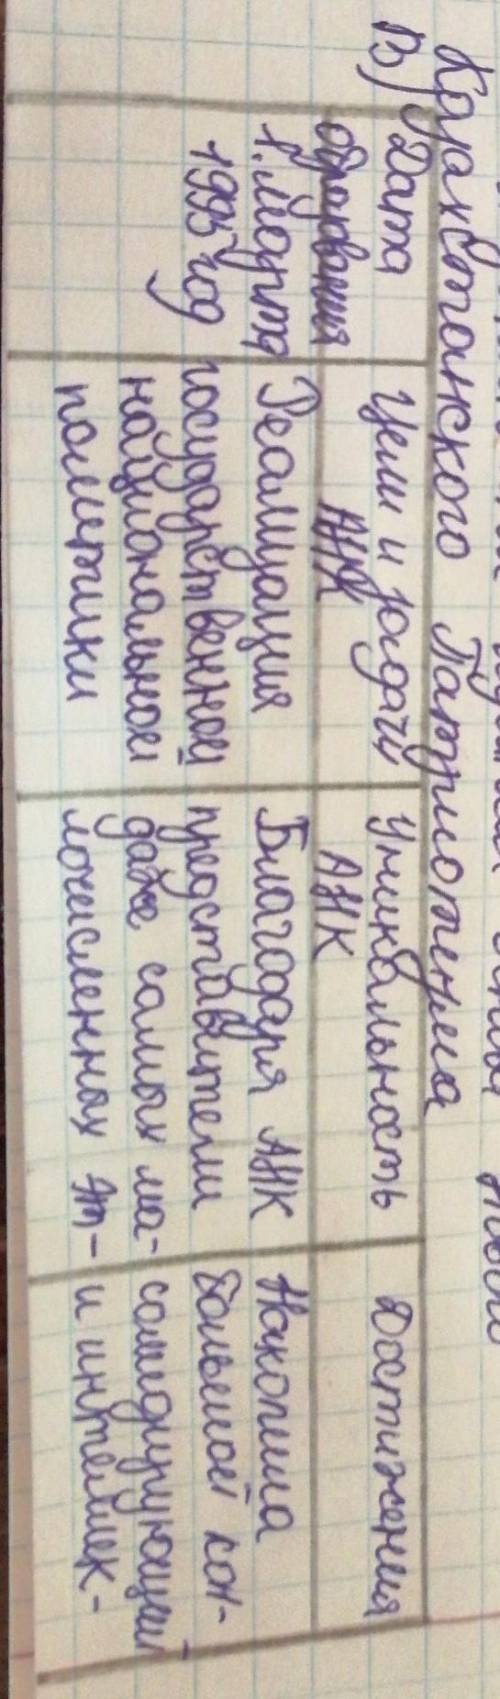 Казахстанского Патриотизма
В) Дата образования
Цели и задачи АНК
Уникальность АНК
Достижения
1. Марта 1995 год
Реализация государственной национальной политики
Благодаря АНК представители даже самых ма-
лочисленных эт-
Накопила большой кон-
солидирующий и интеллек-